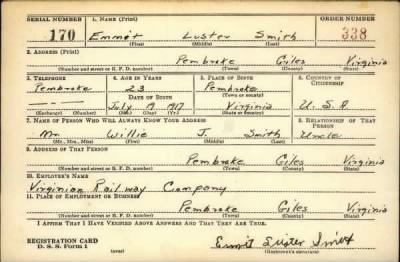 SERIAL NUMBER 1. NAME (Print) ORDER NUMBER
170 Emmet Luster Smith 338
(First) (Middle) (Last)
2. ADDRESS (Print)
Pembroke Giles Virginia
(Number and street or R. F. D. number) (Town) (County) (State)
3. TELEPHONE 4. AGE IN YEARS 5. PLACE OF BIRTH 6. COUNTRY OF CITIZENSHIP
Pembroke 23 Pembroke
DATE OF BIRTH (Town or county)
July 19 1917 Virginia U. S. A
(Exchange) (Number) (Mo.) (Day) (Yr.) (State or country)
7. NAME OF PERSON WHO WILL ALWAYS KNOW YOUR ADDRESS 8. RELATIONSHIP OF THAT PERSON
Mr. Willie J. Smith Uncle
(Mr., Mrs., Miss) (First) (Middle) (Last)
9. ADDRESS OF THAT PERSON
Pembroke Giles Virginia
(Number and street or R. F. D. number) (Town) (County) (State)
10. EMPLOYER'S NAME
Virginian Railway Company
11. PLACE OF EMPLOYMENT OR BUSINESS
Pembroke Giles Virginia
(Number and street or R. F. D. number) (Town) (County) (State)
I AFFIRM THAT I HAVE VERIFIED ABOVE ANSWERS AND THAT THEY ARE TRUE.
REGISTRATION CARD
D. S. S. Form 1 (over) Emmit Luster Smith
(Registrant's signature)